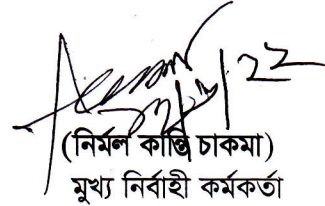 (নির্মল কান্তি চাকমা)
মুখ্য নির্বাহী কর্মকর্তা